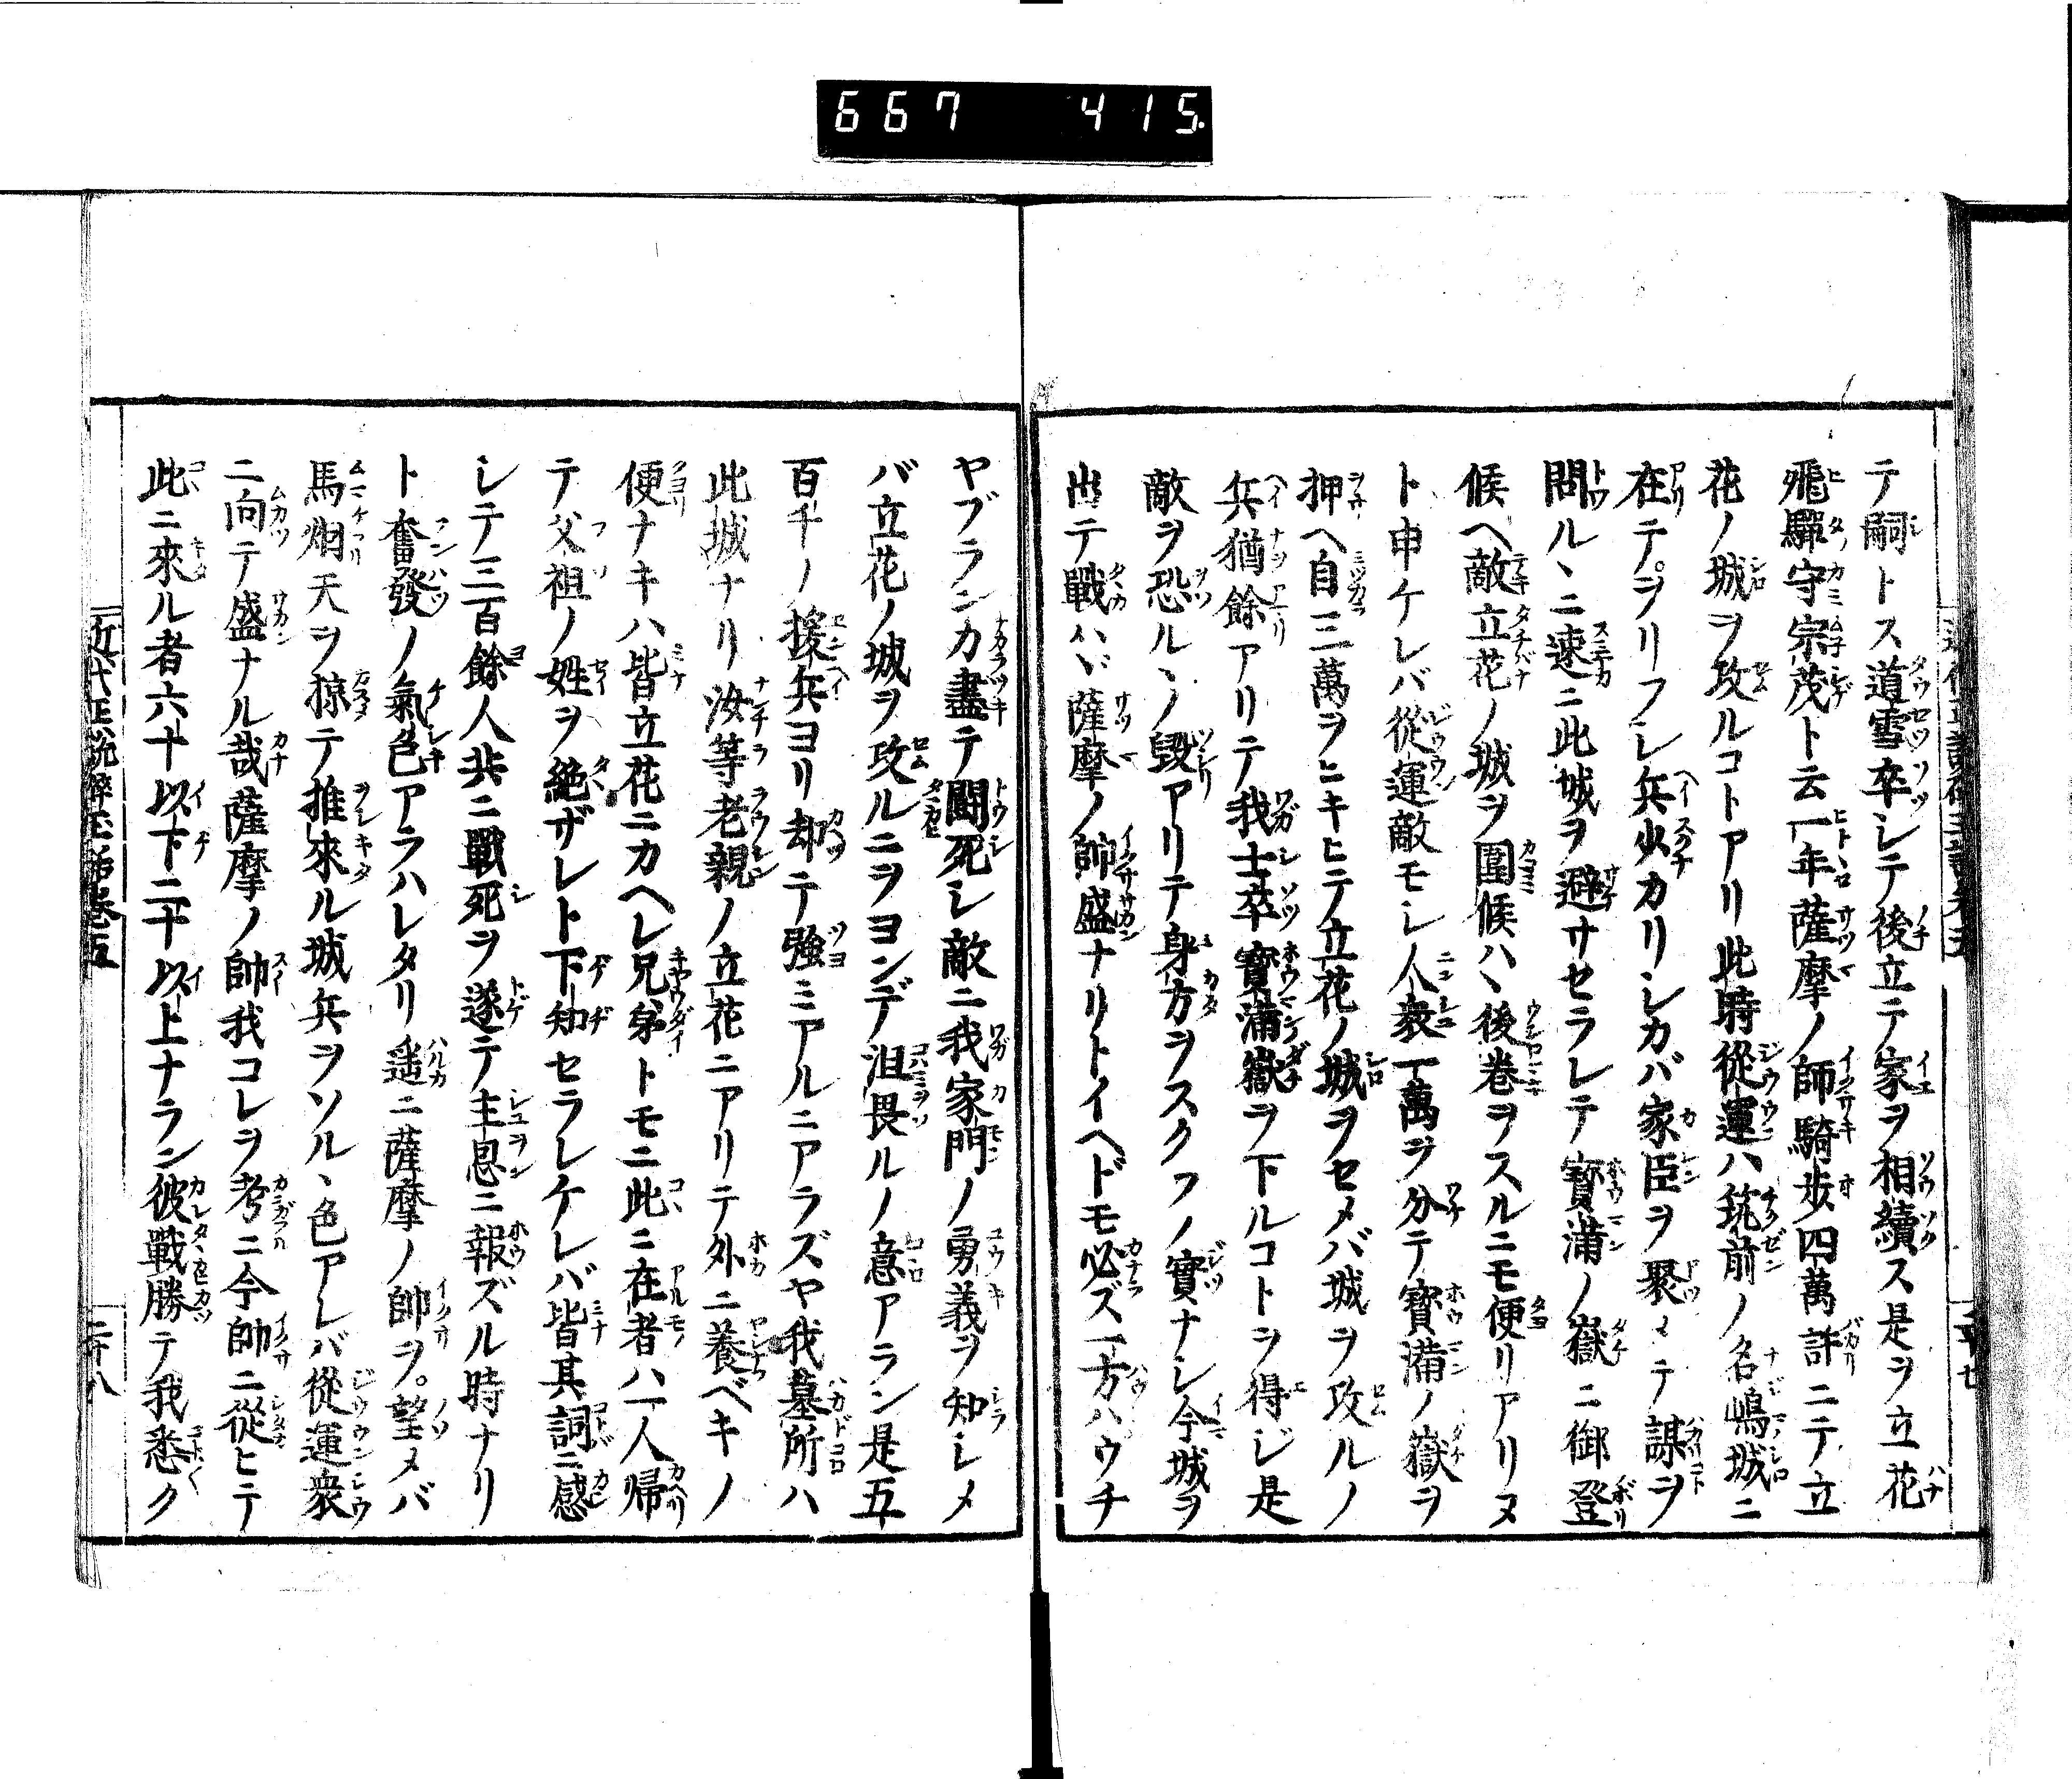 667 415
テ嗣トス道雪卒シテ後立テ家ヲ相續ス是ヲ立花
飛驒守宗茂ト云一年薩摩ノ師騎歩四萬許ニテ立
花ノ城ヲ攻ルコトアリ此時從運ハ筑前ノ名嶋城ニ
在テヲリフシ兵少カリシカバ家臣ヲ聚メテ謀ヲ
問ルヽニ速ニ此城ヲ避サセラレテ寳滿ノ嶽ニ御登
候ヘ敵立花ノ城ヲ圍候ハヽ後巻ヲスルニモ便リアリヌ
ト申ケレバ從運敵モシ人衆一萬ヲ分テ寳滿ノ嶽ヲ
押ヘ自三萬ヲヒキヒテ立花ノ城ヲセメバ城ヲ攻ルノ
兵猶餘アリテ我士卒寳滿嶽ヲ下ルコトヲ得ジ是
敵ヲ恐ルヽノ毀アリテ身方ヲスクフノ實ナシ今城ヲ
出テ戰ハヾ薩摩ノ帥盛ナリトイヘドモ必ズ一方ハウチ
ヤブランカ盡テ鬪死シ敵ニ我家門ノ勇義ヲ知シメ
バ立花ノ城ヲ攻ルニヲヨンデ沮畏ルノ意アラン是五
百千ノ援兵ヨリ却テ強ミアルニアラズヤ我墓所ハ
此城ナリ汝等老親ノ立花ニアリテ外ニ養ベキノ
便ナキハ皆立花ニカヘレ兄弟トモニ此ニ在者ハ一人帰
テ父祖ノ姓ヲ絶ザレト下知セラレケレバ皆其詞ニ感
シテ三百餘人共ニ戰死ヲ遂テ主恩ニ報ズル時ナリ
ト奮發ノ氣色アラハレタリ遥ニ薩摩ノ帥ヲ望メバ
馬烟天ヲ掠テ推來ル城兵ヲソルヽ色アレバ從運衆
ニ向テ盛ナル哉薩摩ノ帥我コレヲ考ニ今帥ニ從ヒテ
此ニ來ル者六十以下二十以上ナラン彼戰勝テ我悉ク
近代正説碎玉話巻五
二十八